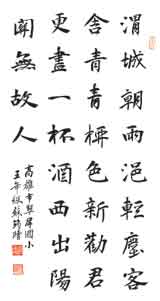 渭城朝雨浥輕塵客
舍青青柳色新勸君
更盡一杯酒西出陽
關無故人
高雄市翠屏國小
五年級蘇